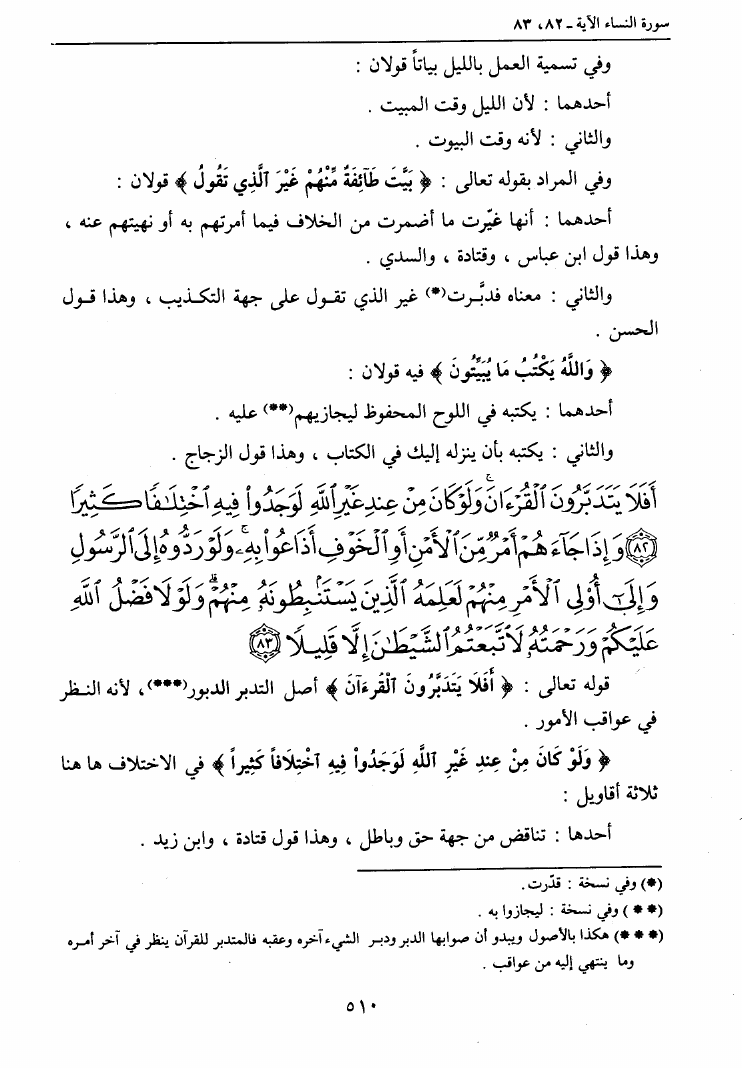 سورة النساء الآية ـ ٨٢، ٨٣
وفي تسمية العمل بالليل بياتاً قولان :
أحدهما : لأن الليل وقت المبيت .
والثاني : لأنه وقت البيوت .
وفي المراد بقوله تعالى : ﴿ بَيَّتَ طَآئِفَةٌ مِّنْهُمْ غَيْرَ ٱلَّذِي تَقُولُ ﴾ قولان :
أحدهما : أنها غيّرت ما أضمرت من الخلاف فيما أمرتهم به أو نهيتهم عنه ،
وهذا قول ابن عباس ، وقتادة ، والسدي .
والثاني : معناه فدبَّرت(*) غير الذي تقول على جهة التكذيب ، وهذا قول
الحسن .
﴿ وَاللَّهُ يَكْتُبُ مَا يُبَيِّتُونَ ﴾ فيه قولان :
أحدهما : يكتبه في اللوح المحفوظ ليجازيهم(**) عليه .
والثاني : يكتبه بأن ينزله إليك في الكتاب ، وهذا قول الزجاج .
أَفَلَا يَتَدَبَّرُونَ ٱلْقُرْءَانَۚ وَلَوْ كَانَ مِنْ عِندِ غَيْرِ ٱللَّهِ لَوَجَدُوا۟ فِيهِ ٱخْتِلَـٰفًا كَثِيرًا
﴿٨٢﴾ وَإِذَا جَآءَهُمْ أَمْرٌ مِّنَ ٱلْأَمْنِ أَوِ ٱلْخَوْفِ أَذَاعُوا۟ بِهِۦۚ وَلَوْ رَدُّوهُ إِلَى ٱلرَّسُولِ
وَإِلَىٰٓ أُو۟لِى ٱلْأَمْرِ مِنْهُمْ لَعَلِمَهُ ٱلَّذِينَ يَسْتَنۢبِطُونَهُۥ مِنْهُمْۗ وَلَوْلَا فَضْلُ ٱللَّهِ
عَلَيْكُمْ وَرَحْمَتُهُۥ لَٱتَّبَعْتُمُ ٱلشَّيْطَـٰنَ إِلَّا قَلِيلًا ﴿٨٣﴾
قوله تعالى : ﴿ أَفَلَا يَتَدَبَّرُونَ ٱلْقُرءَآنَ ﴾ أصل التدبر الدبور(***)، لأنه النظر
في عواقب الأمور .
﴿ وَلَوْ كَانَ مِنْ عِندِ غَيْرِ ٱللَّهِ لَوَجَدُوا۟ فِيهِ ٱخْتِلَافاً كَثِيراً ﴾ في الاختلاف ها هنا
ثلاثة أقاويل :
أحدها : تناقض من جهة حق وباطل ، وهذا قول قتادة ، وابن زيد .
(*) وفي نسخة : قدّرت.
(**) وفي نسخة : ليجازوا به .
(***) هكذا بالأصول ويبدو أن صوابها الدبر ودبر الشيء آخره وعقبه فالمتدبر للقرآن ينظر في آخر أمره
وما ينتهي إليه من عواقب .
٥١٠